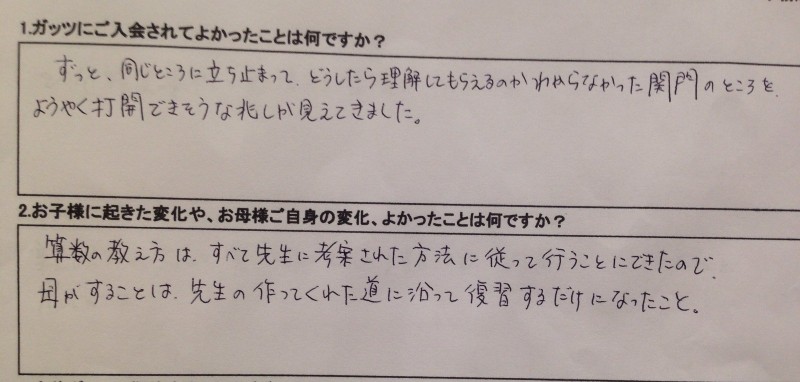 1.ガッツにご入会されてよかったことは何ですか？
ずっと、同じところに立ち止まって、どうしたら理解してもらえるのかわからなかった関門のところを、
ようやく打開できそうな兆しが見えてきました。
2.お子様に起きた変化や、お母様ご自身の変化、よかったことは何ですか？
算数の教え方は、すべて先生に考案された方法に従って行うことにできたので、
母がすることは、先生の作ってくれた道に沿って復習するだけになったこと。